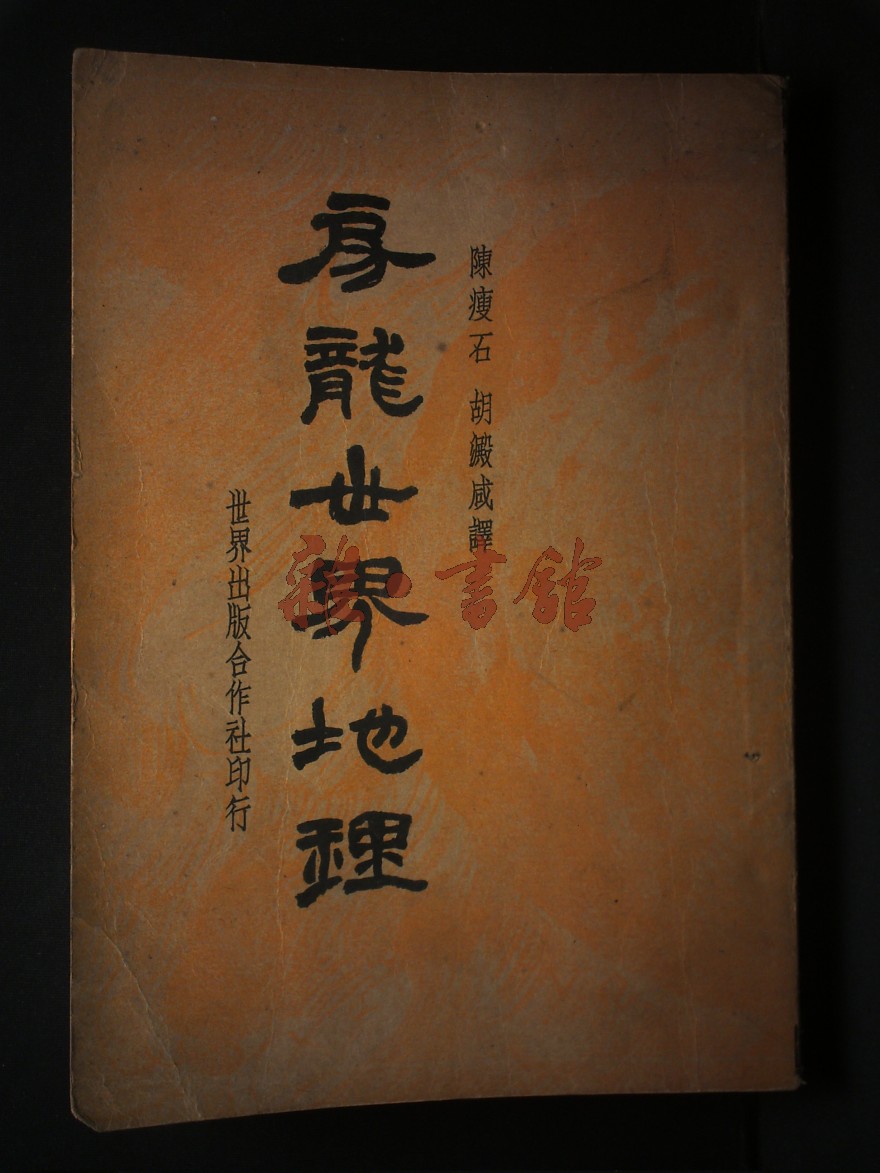 陳瘦石 胡澱咸譯
房龍世界地理
世界出版合作社印行
書館